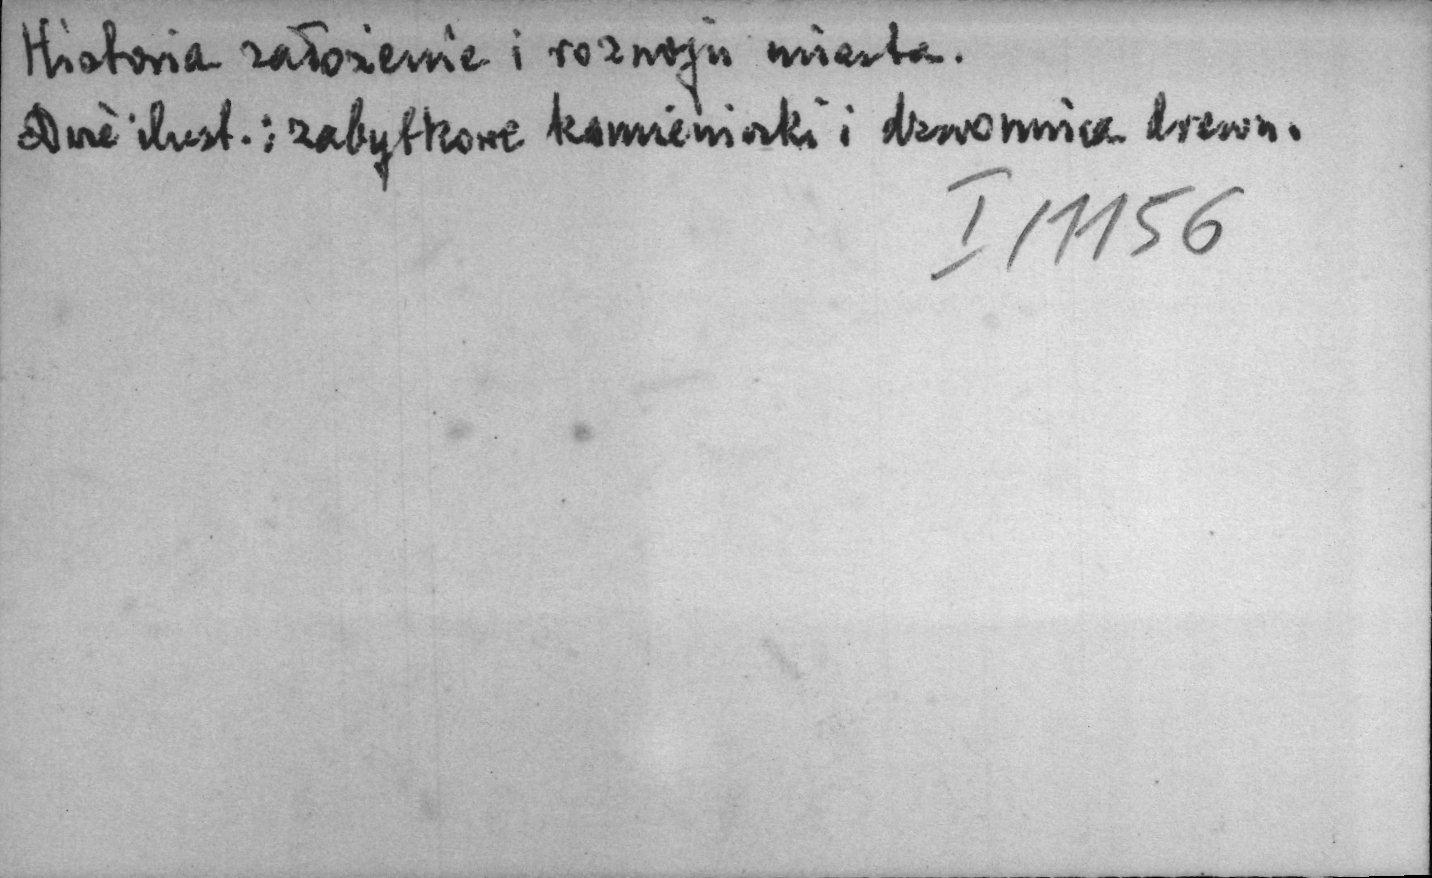 Historia założenia i rozwoju miasta.
Dwie ilust.: zabytkowe kamieniczki i dzwonnica drewn.
I/1156